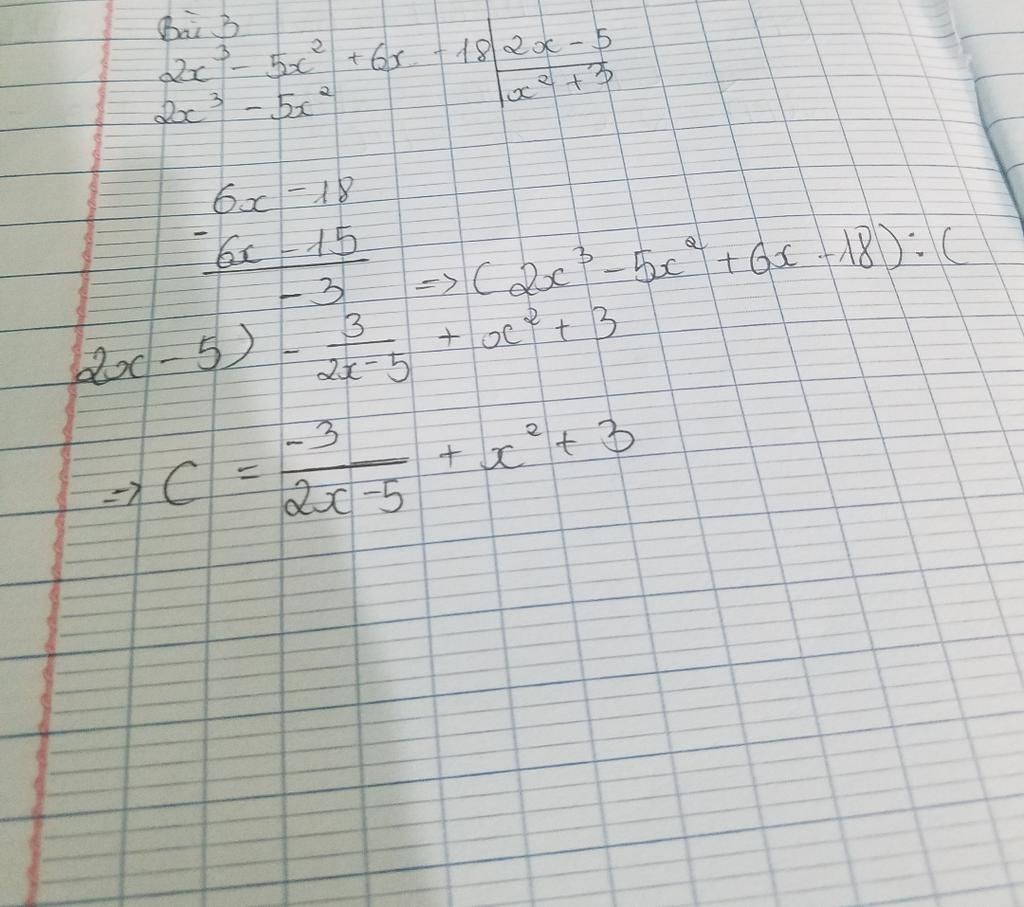 Bài 3
2x³ - 5x² + 6x - 18 | 2x - 5
2x³ - 5x² | x² + 3
6x - 18
-
6x - 15
- 3 => (2x³ - 5x² + 6x - 18) : (
2x - 5) - 3/(2x-5) + x² + 3
=> C = -3/(2x-5) + x² + 3